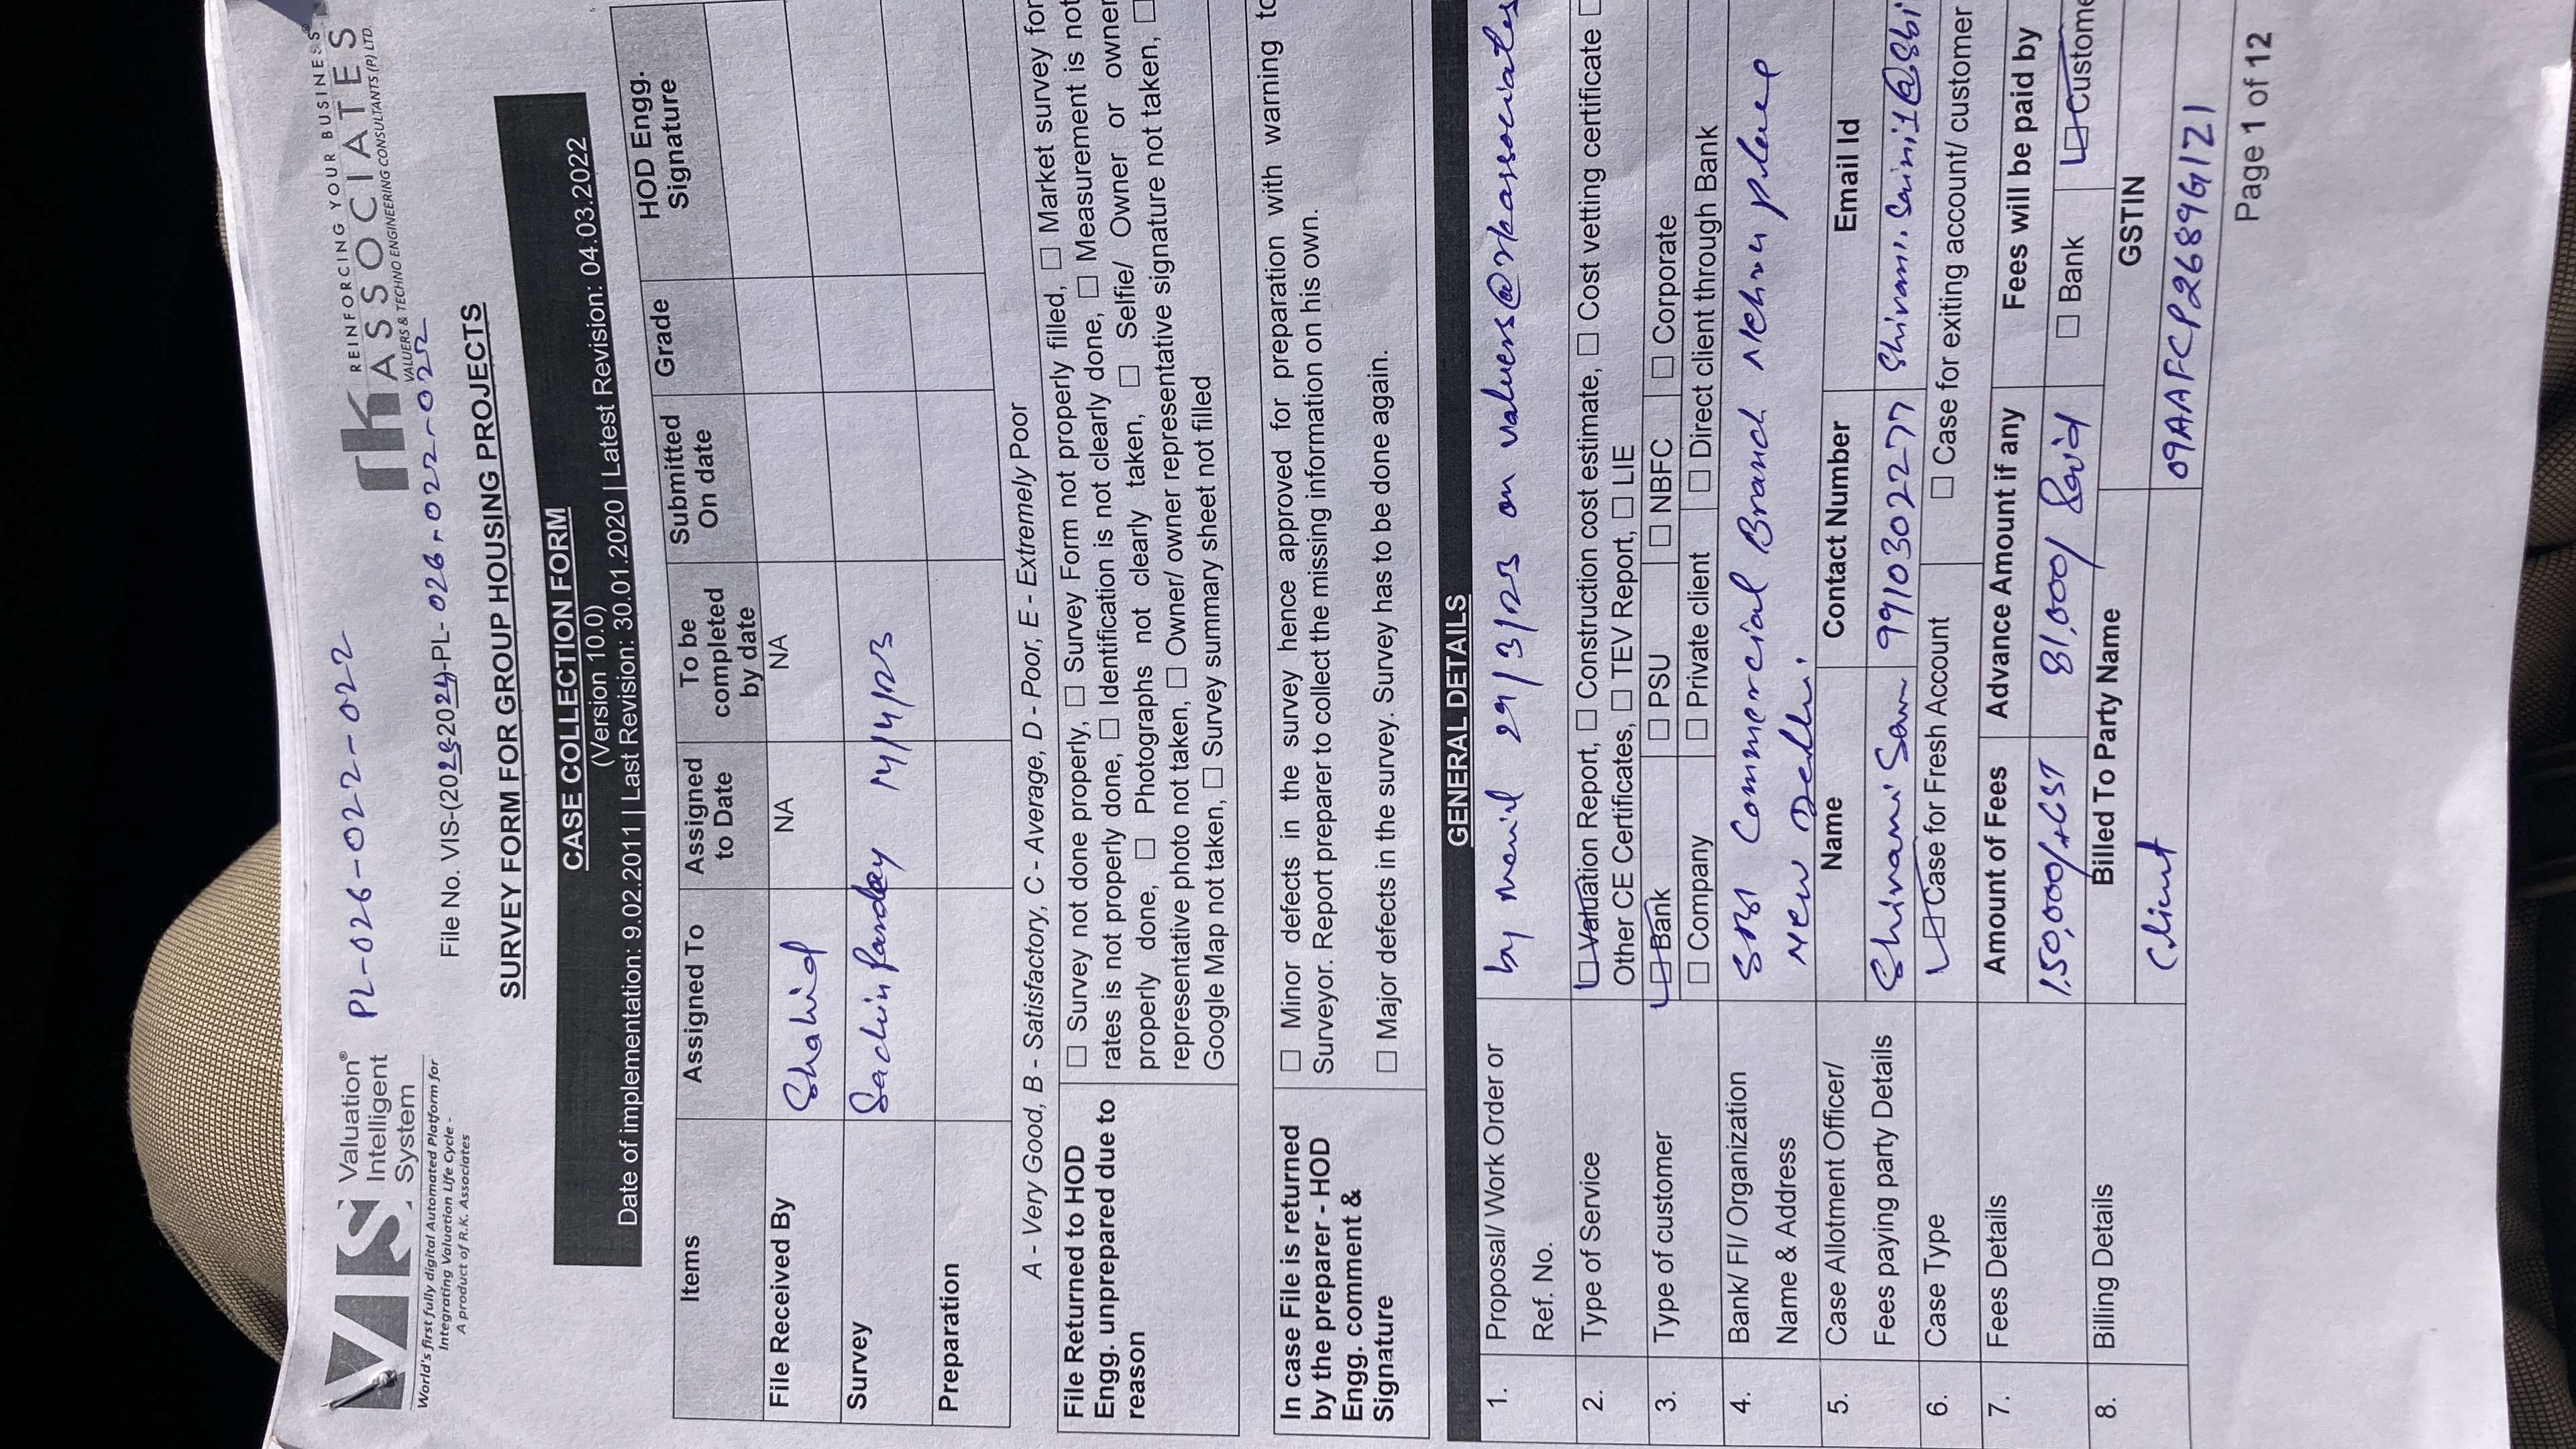 VIS Valuation®
Intelligent
System
World's first fully digital Automated Platform for
Integrating Valuation Life Cycle -
A product of R.K. Associates
PL-026-022-022
REINFORCING YOUR BUSINESS®
rk ASSOCIATES
VALUERS & TECHNO ENGINEERING CONSULTANTS (P) LTD.
File No. VIS-(2023-2024-PL-026-022-022
SURVEY FORM FOR GROUP HOUSING PROJECTS
CASE COLLECTION FORM
(Version 10.0)
Date of implementation: 9.02.2011 | Last Revision: 30.01.2020 | Latest Revision: 04.03.2022
Items Assigned To Assigned to Date To be completed by date Submitted On date Grade HOD Engg. Signature
File Received By Shahid NA NA
Survey Sachin Pandey 14/4/23
Preparation
A - Very Good, B - Satisfactory, C - Average, D - Poor, E - Extremely Poor
File Returned to HOD
Engg. unprepared due to
reason
☐ Survey not done properly, ☐ Survey Form not properly filled, ☐ Market survey for
rates is not properly done, ☐ Identification is not clearly done, ☐ Measurement is not
properly done, ☐ Photographs not clearly taken, ☐ Selfie/ Owner or owner
representative photo not taken, ☐ Owner/ owner representative signature not taken, ☐
Google Map not taken, ☐ Survey summary sheet not filled
In case File is returned
by the preparer - HOD
Engg. comment &
Signature
☐ Minor defects in the survey hence approved for preparation with warning to
Surveyor. Report preparer to collect the missing information on his own.
☐ Major defects in the survey. Survey has to be done again.
GENERAL DETAILS
1. Proposal/ Work Order or
Ref. No.
by mail 29/3/23 on valuers@rkassociates
2. Type of Service
☐ Valuation Report, ☐ Construction cost estimate, ☐ Cost vetting certificate ☐
Other CE Certificates, ☐ TEV Report, ☐ LIE
3. Type of customer
☐ Bank ☐ PSU ☐ NBFC ☐ Corporate
☐ Company ☐ Private client ☐ Direct client through Bank
4. Bank/ FI/ Organization
Name & Address
SBI Commercial Branch Nehru place
New Delhi.
5. Case Allotment Officer/
Fees paying party Details
Name Contact Number Email Id
Shivami 9910302277 Shivami.Saini1@Sbi
6. Case Type
☐ Case for Fresh Account ☐ Case for exiting account/ customer
7. Fees Details
Amount of Fees Advance Amount if any Fees will be paid by
1,50,000/+GST 81,000/ Paid ☐ Bank ☐ Custome
8. Billing Details
Billed To Party Name GSTIN
Client 09AAFCP2689G1Z1
Page 1 of 12